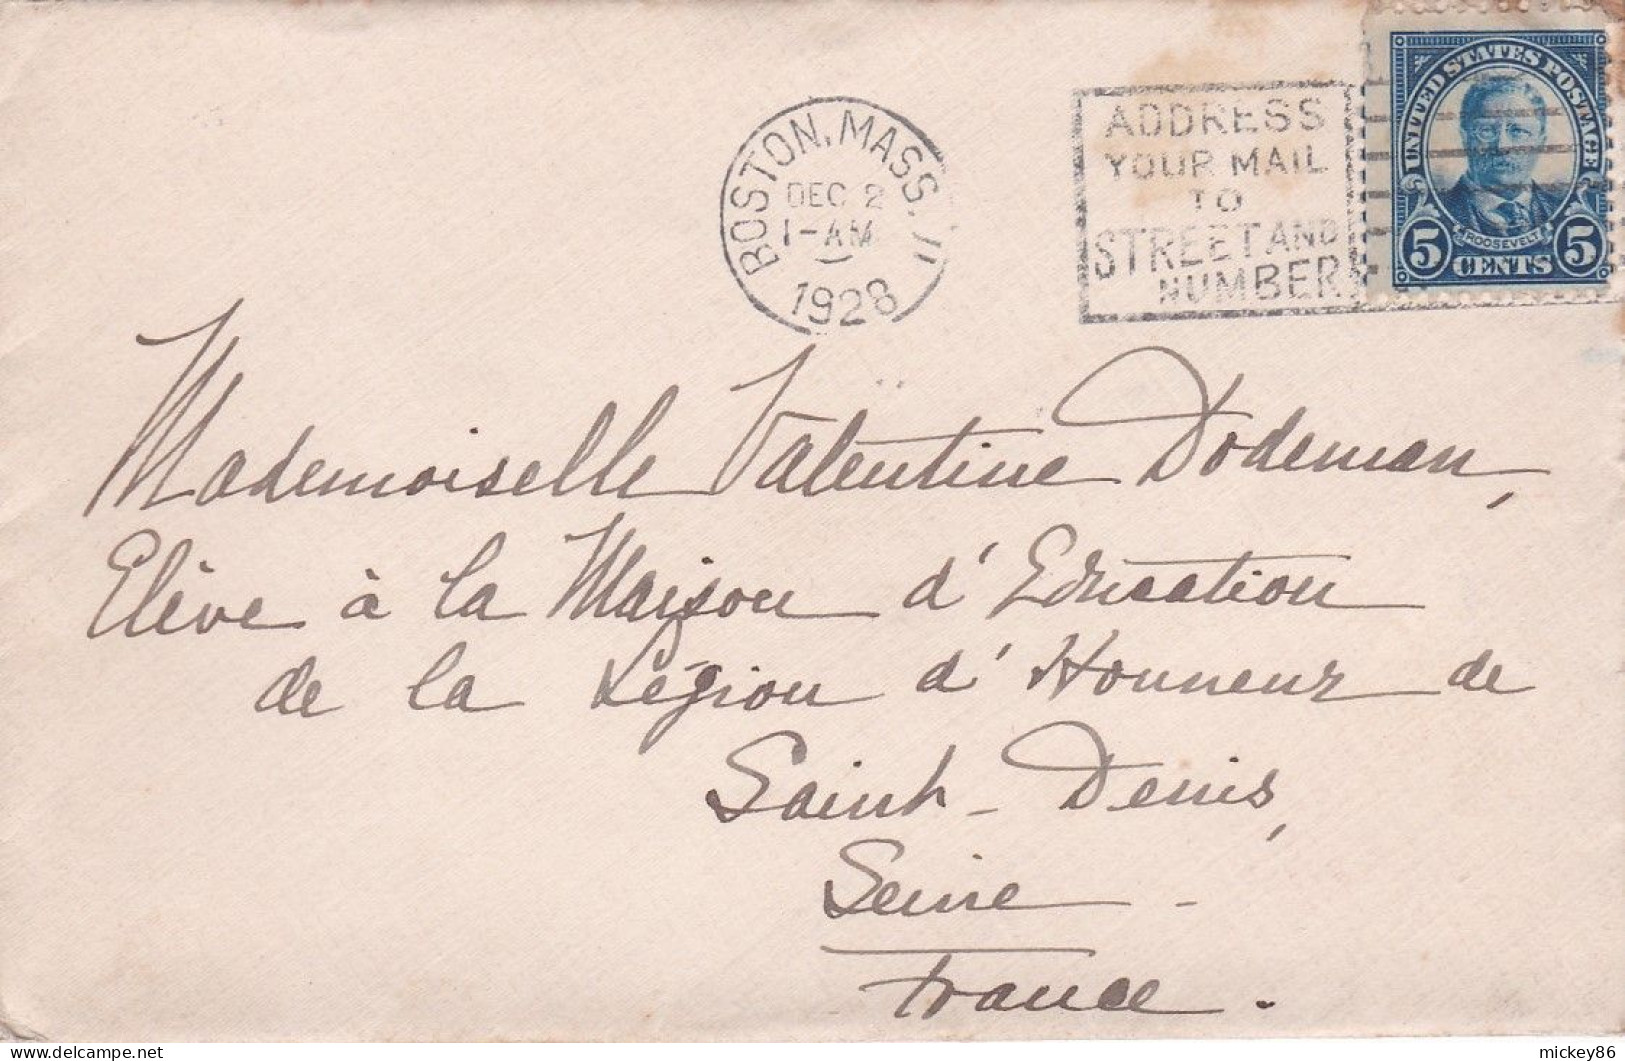 BOSTON, MASS. 11
DEC 2
1-AM
1928
ADDRESS
YOUR MAIL
TO
STREET AND
NUMBER
UNITED STATES POSTAGE
ROOSEVELT
5 CENTS 5
Mademoiselle Valentine Dodeman,
Elève à la Maison d'Education
de la Légion d'Honneur de
Saint-Denis,
Seine -
France.
mickey86